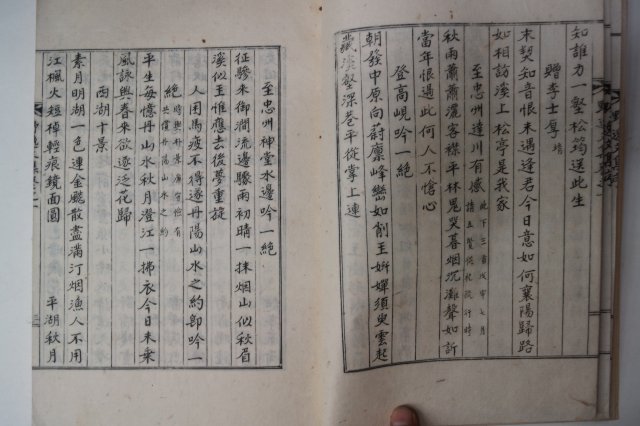 如誰力一壑松筠送此生
贈李士厚培
末契知音恨未遇逢君今日意如何襄陽歸路
如相訪溪上松亭是我家
至忠州達川有感 此下三首戊申七月請五賢從祀疏行時
秋雨蕭蕭濕客襟平林鬼哭暮烟沉灘聲如訴
當年恨過此何人不愴心
登高峴吟一絶
朝發中原向蔚廩峰巒如削玉娉嬋須臾雲起
藏溪壑深巷平從掌上連
至忠州神堂水邊吟一絶
征驂來御澗流邊驟雨初晴一抹烟山似秋眉
溪似玉惟應去後夢重旋
人困馬疲不得遂丹陽山水之約卽吟一
絶 時與朴 有共償丹陽山水之約
平生每憶丹山水秋月澄江一拂衣今日未乗
風詠興春來欲遂泛花歸
西湖十景
素月明湖一色連金飈散盡滿汀烟漁人不用
江楓火短棹輕痕鏡面圓 平湖秋月